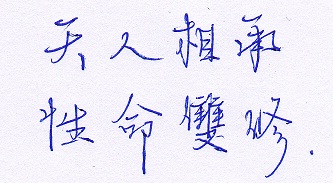 天人相承
性命雙修.